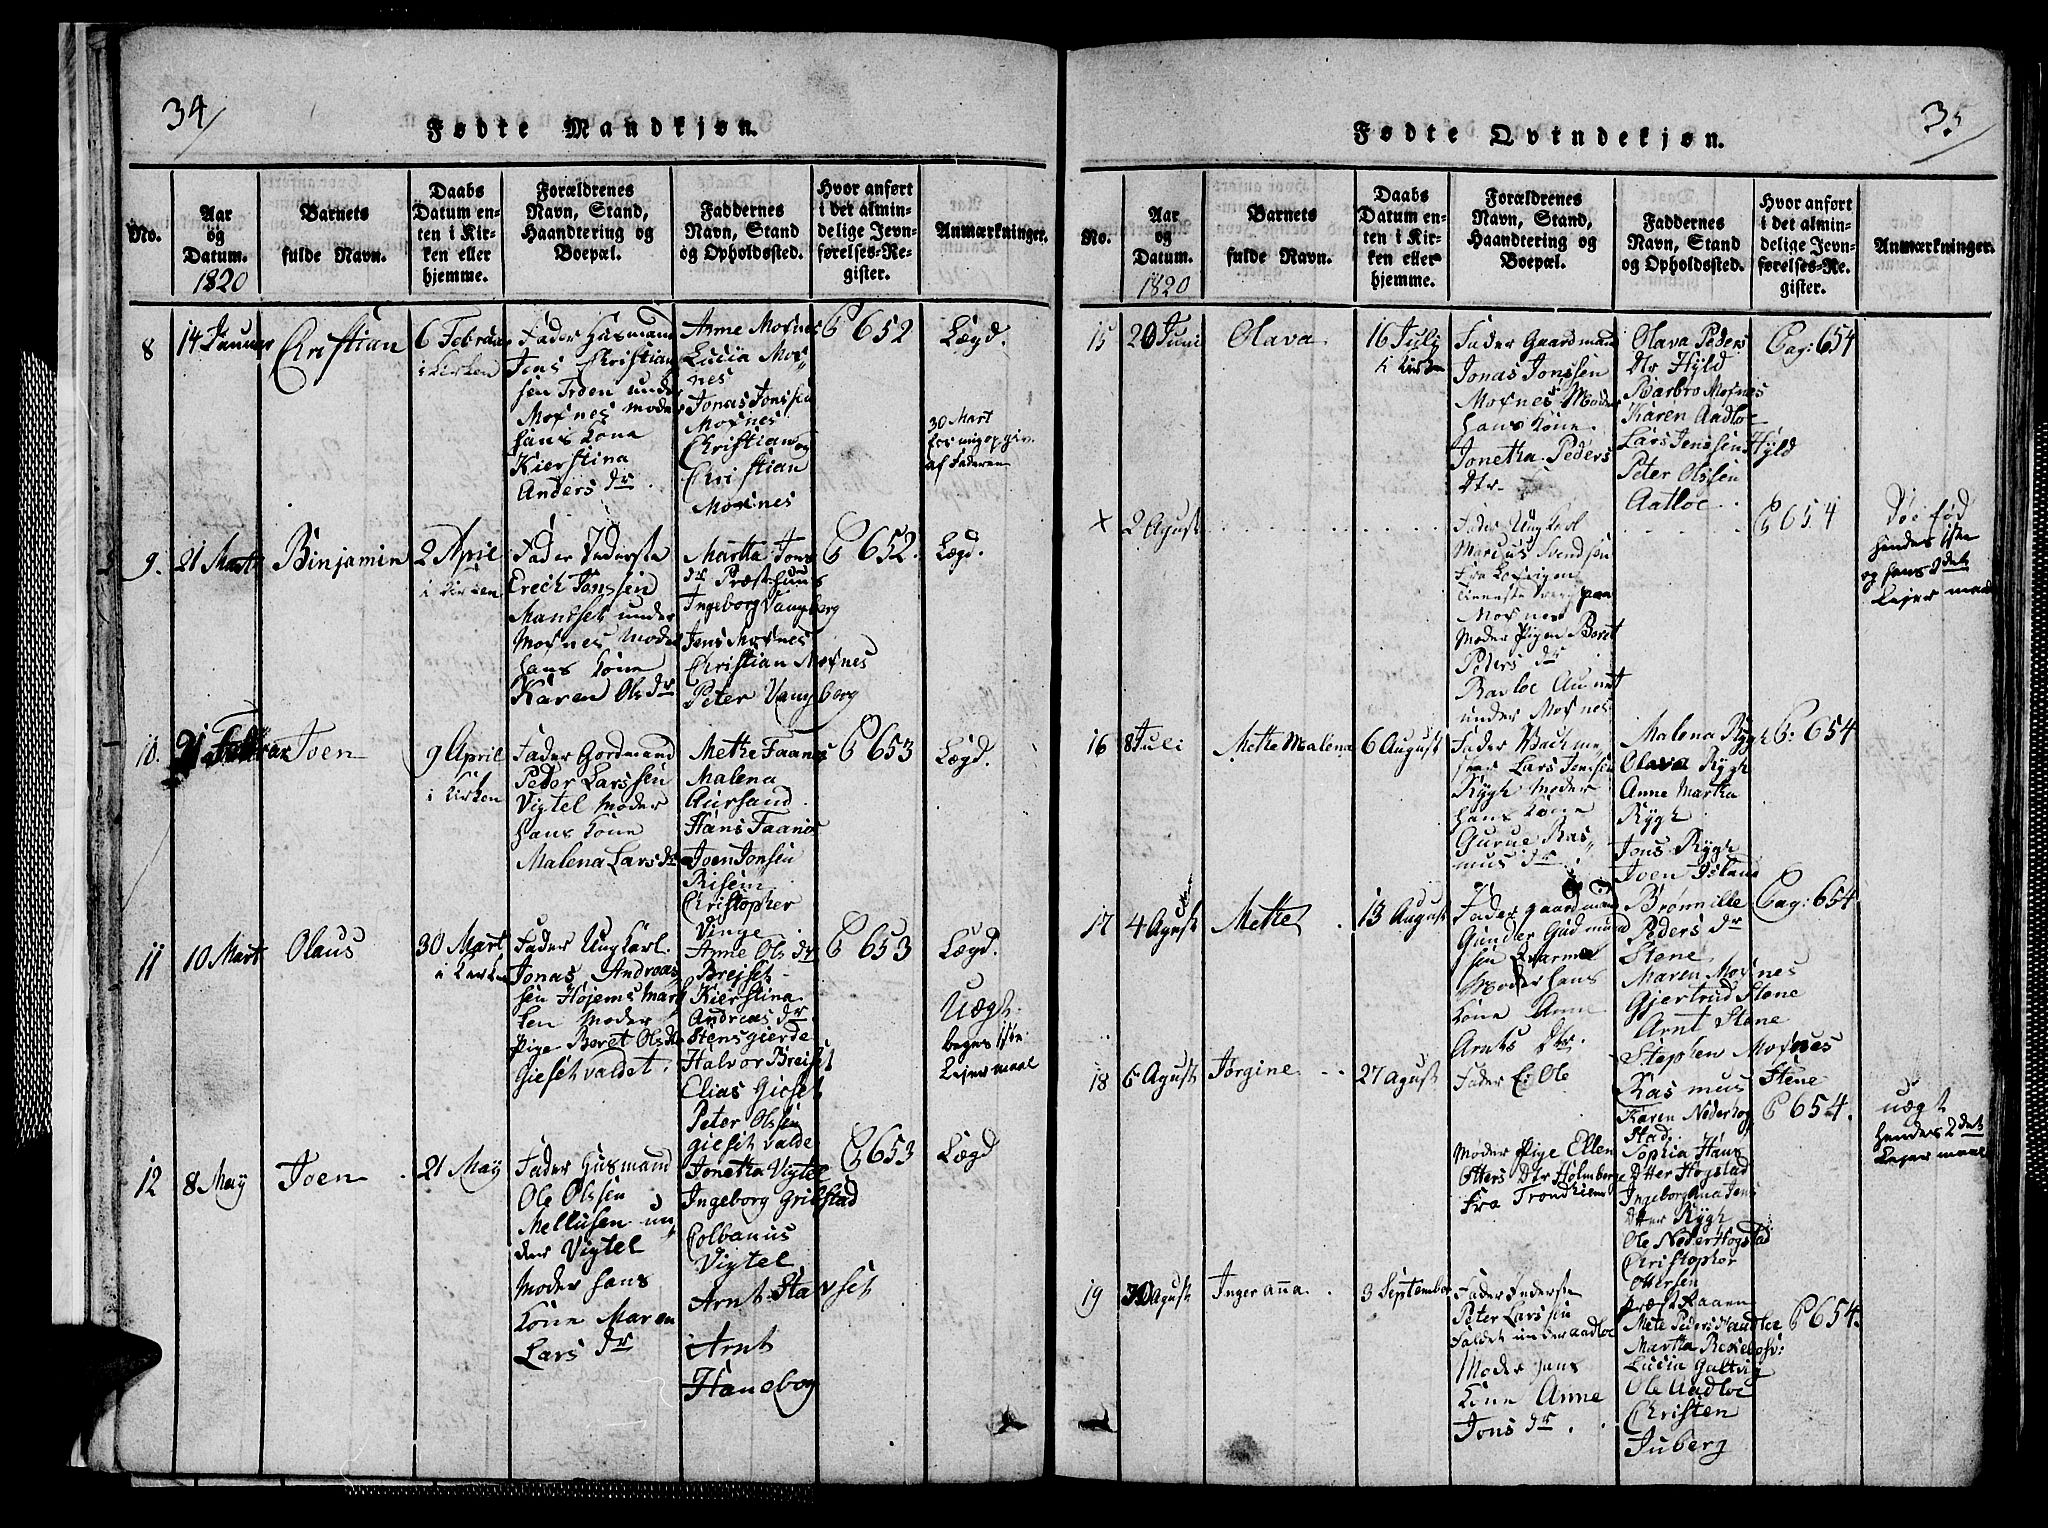 34
Fødte Mandkjøn.
No.
Aar
og
Datum.
1820
Barnets
fulde Navn.
Daabs
Datum en-
ten i Kir-
ken eller
hjemme.
Forældrenes
Navn, Stand,
Haandtering og
Boepæl.
Faddernes
Navn, Stand
og Opholdssted.
Hvor anført
i det almin-
delige Jevn-
førelses-Re-
gister.
Anmærkninger.
8
14 Januar
Christian
6 Februar
i Kirken
Fader Husmand
Jens Christian
sen Troen under
Moxnes moder
hans Kone
Kierstina
Anders dr.
Anne Moxnes
Lucia Mox
nes
Jonas Jonssen
Moxnes
Christian og
Christian
Moxnes
P 652
Lægd.
30 Mart
for mig opgiv
af Faderen
9.
21 Marts
Binjamin
2 April
i Kirken
Fader Inderste
Erich Jonssen
under
Moxnes Moder
hans Kone
Karen Ols dr
Martha Jons
dr Præsthuus
Ingeborg Vangberg
Jens Moxnes
Christian Moxnes
Peter Vangberg
P 652.
Lægd.
10.
21 Februar
Joen
9 April
i Kirken
Fader Gordmand
Peder Larssen
Vigtel Moder
hans Kone
Malena Lars dr
Methe Faanes
Malena
Aursand
Hans Faanes
Joen Jonsen
Risem
Christopher
Vinge
P 653
Lægd.
11
10 Mart
Olaus
30 Mart
i Kirken
Fader Ung Karl
Jonas Andreas
sen Højems mar
ken Moder
Pige Beret Ols dr
Giesetvaldet.
Anne Ols dr
Brejset
Kierstina
Andreas dr.
Stensgierde
Halvor Brejset
Elias Gieset
Peter Olssen
giesetvalde
P 653
Lægd.
Uægt.
beges 1ste
Lejermaal
12
8 May
Joen
21 May
Fader Husmand
Ole Olssen
Mellusen un
der Vigtel
Moder hans
Kone Maren
Lars dr
Jonetha Vigtel
Ingeborg Grilstad
Colbanus
Vigtel
Arnt Stavset
Arnt
Hanebog
P 653
Lægd
35
Fødte Qvindekjøn.
No.
Aar
og
Datum.
1820
Barnets
fulde Navn.
Daabs
Datum en-
ten i Kir-
ken eller
hjemme.
Forældrenes
Navn, Stand,
Haandtering og
Boepæl.
Faddernes
Navn, Stand
og Opholdssted.
Hvor anført
i det almin-
delige Jevn-
førelses-Re-
gister.
Anmærkninger.
15
20 Juni
Olava
16 Julj
i Kirken
Fader Gaardmand
Jonas Jonssen
Moxnes Moder
hans Kone
Jonetha Peders
Dtr.
Olava Peders
Dtr Hyld
Barbro Moxnes
Karen Aadloe
Lars Jenssen Hyld
Peter Olssen
Aatloe
Pag: 654
×
2 Agust
Fader Ungkarl
Marcus Svendsen
Fra
paa
Moxnes
Moder Pigen Beret
Peders dr
Aunet
under Moxnes
P 654
Død fød
hendes 1ste
og hans 2det
Lejermaal
16
8 Juli
Methe Malena
6 August
Fader
Lars Jonssen
Rygh Moder
hans Kone
Gurue Ras
mus dr
Malena Rygh
Olava Rygh
Anne Martha
Rygh
Jons Rygh
Joen
P: 654
17
4 Agust
Methe
13 August
Fader gaardmand
Gunder Gudmund
sen Qvarme
Moder hans
Kone Anne
Arnts Dtr.
Brønnille
Peders dr
Stene
Maren Moxnes
Gjertrud Stene
Arnt Stene
Stephen Moxnes
Rasmus Stene
Pag: 654
18
6 Agust
Jørgine
27 Agust
Fader Ei Ole
Moder Pige Ellen
Otters Dtr Holmberg
fra Trondhiem
Karen Nederhog
stad
Sophia Hans
Dtter Hogstad
Ingeborg Ana Jens
Dtter Rygh
Ole NederHogstad
Christopher
Ottersen
præst Raaen
P 654.
uægt
hendes 2det
Lejermaal
19
30 Agust
Inger ana
3 September
Fader Inderste
Peter Larssen
Faldet under aadloe
Moder hans
Kone Anne
Jons dr.
Mete Peders dr aadloe
Martha
Lucia Galtvig
Ole Aadloe
Christen
Juberg
P 654.